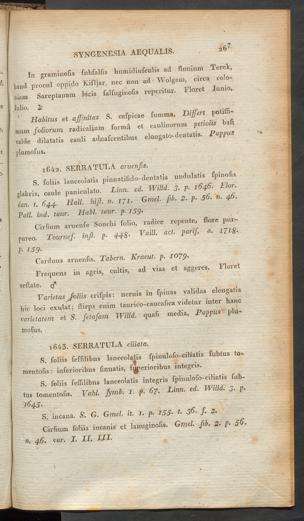 SYNGENESIA AEQUALIS. 267
In graminosis subsalsis humidiusculis ad fluvium Terek,
haud procul oppido Kisljar, nec non ad Wolgam, circa colo-
niam Sareptanam locis salsuginosis reperitur. Floret Junio,
Julio. ♃
Habitus et affinitas S. caspicae summa. Differt potissi-
mum foliorum radicalium forma et caulinorum petiolis basi
valde dilatatis cauli adnascentibus elongato-dentatis. Pappus
plumosus.
1642. SERRATULA arvensis.
S. foliis lanceolatis pinnatifido-dentatis undulatis spinosis
glabris, caule paniculato. Linn. ed. Willd. 3. p. 1646. Flor.
Hall. hist. n. 171. Gmel. sib. 2. p. 56. n. 46.
Pall. ind. taur. Habl. taur. p. 159.
Cirsium arvense Sonchi folio, radice repente, flore pur-
pureo. Tournef. inst. p. 448. Vaill. act. paris. a. 1718.
p. 159.
Carduus arvensis. Tabern. Kraeut. p. 1079.
Frequens in agris, cultis, ad vias et aggeres. Floret
aestate. ♂
Varietas foliis crispis: nervis in spinas validas elongatis
hic loci exulat; stirps enim taurico-caucasica videtur inter hanc
varietatem et S. setosam Willd. quasi media, Pappus plu-
mosus.
1643. SERRATULA ciliata.
S. foliis sessilibus lanceolatis spinuloso-ciliatis subtus to-
mentosis: inferioribus sinuatis, superioribus integris.
S. foliis sessilibus lanceolatis integris spinuloso-ciliatis sub-
tus tomentosis. Vahl. symb. 1. p. 67. Linn. ed. Willd. 3. p.
1645.
S. incana. S. G. Gmel. it. 1. p. 155. t. 36. f. 2.
Cirsium foliis incanis et lanuginosis. Gmel. sib. 2. p. 56.
n. 46. var. I. II. III.